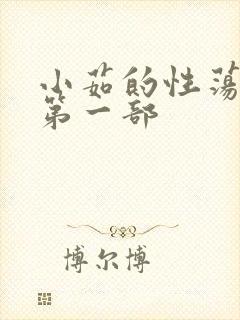 小茹的性荡
第一部
博尔博